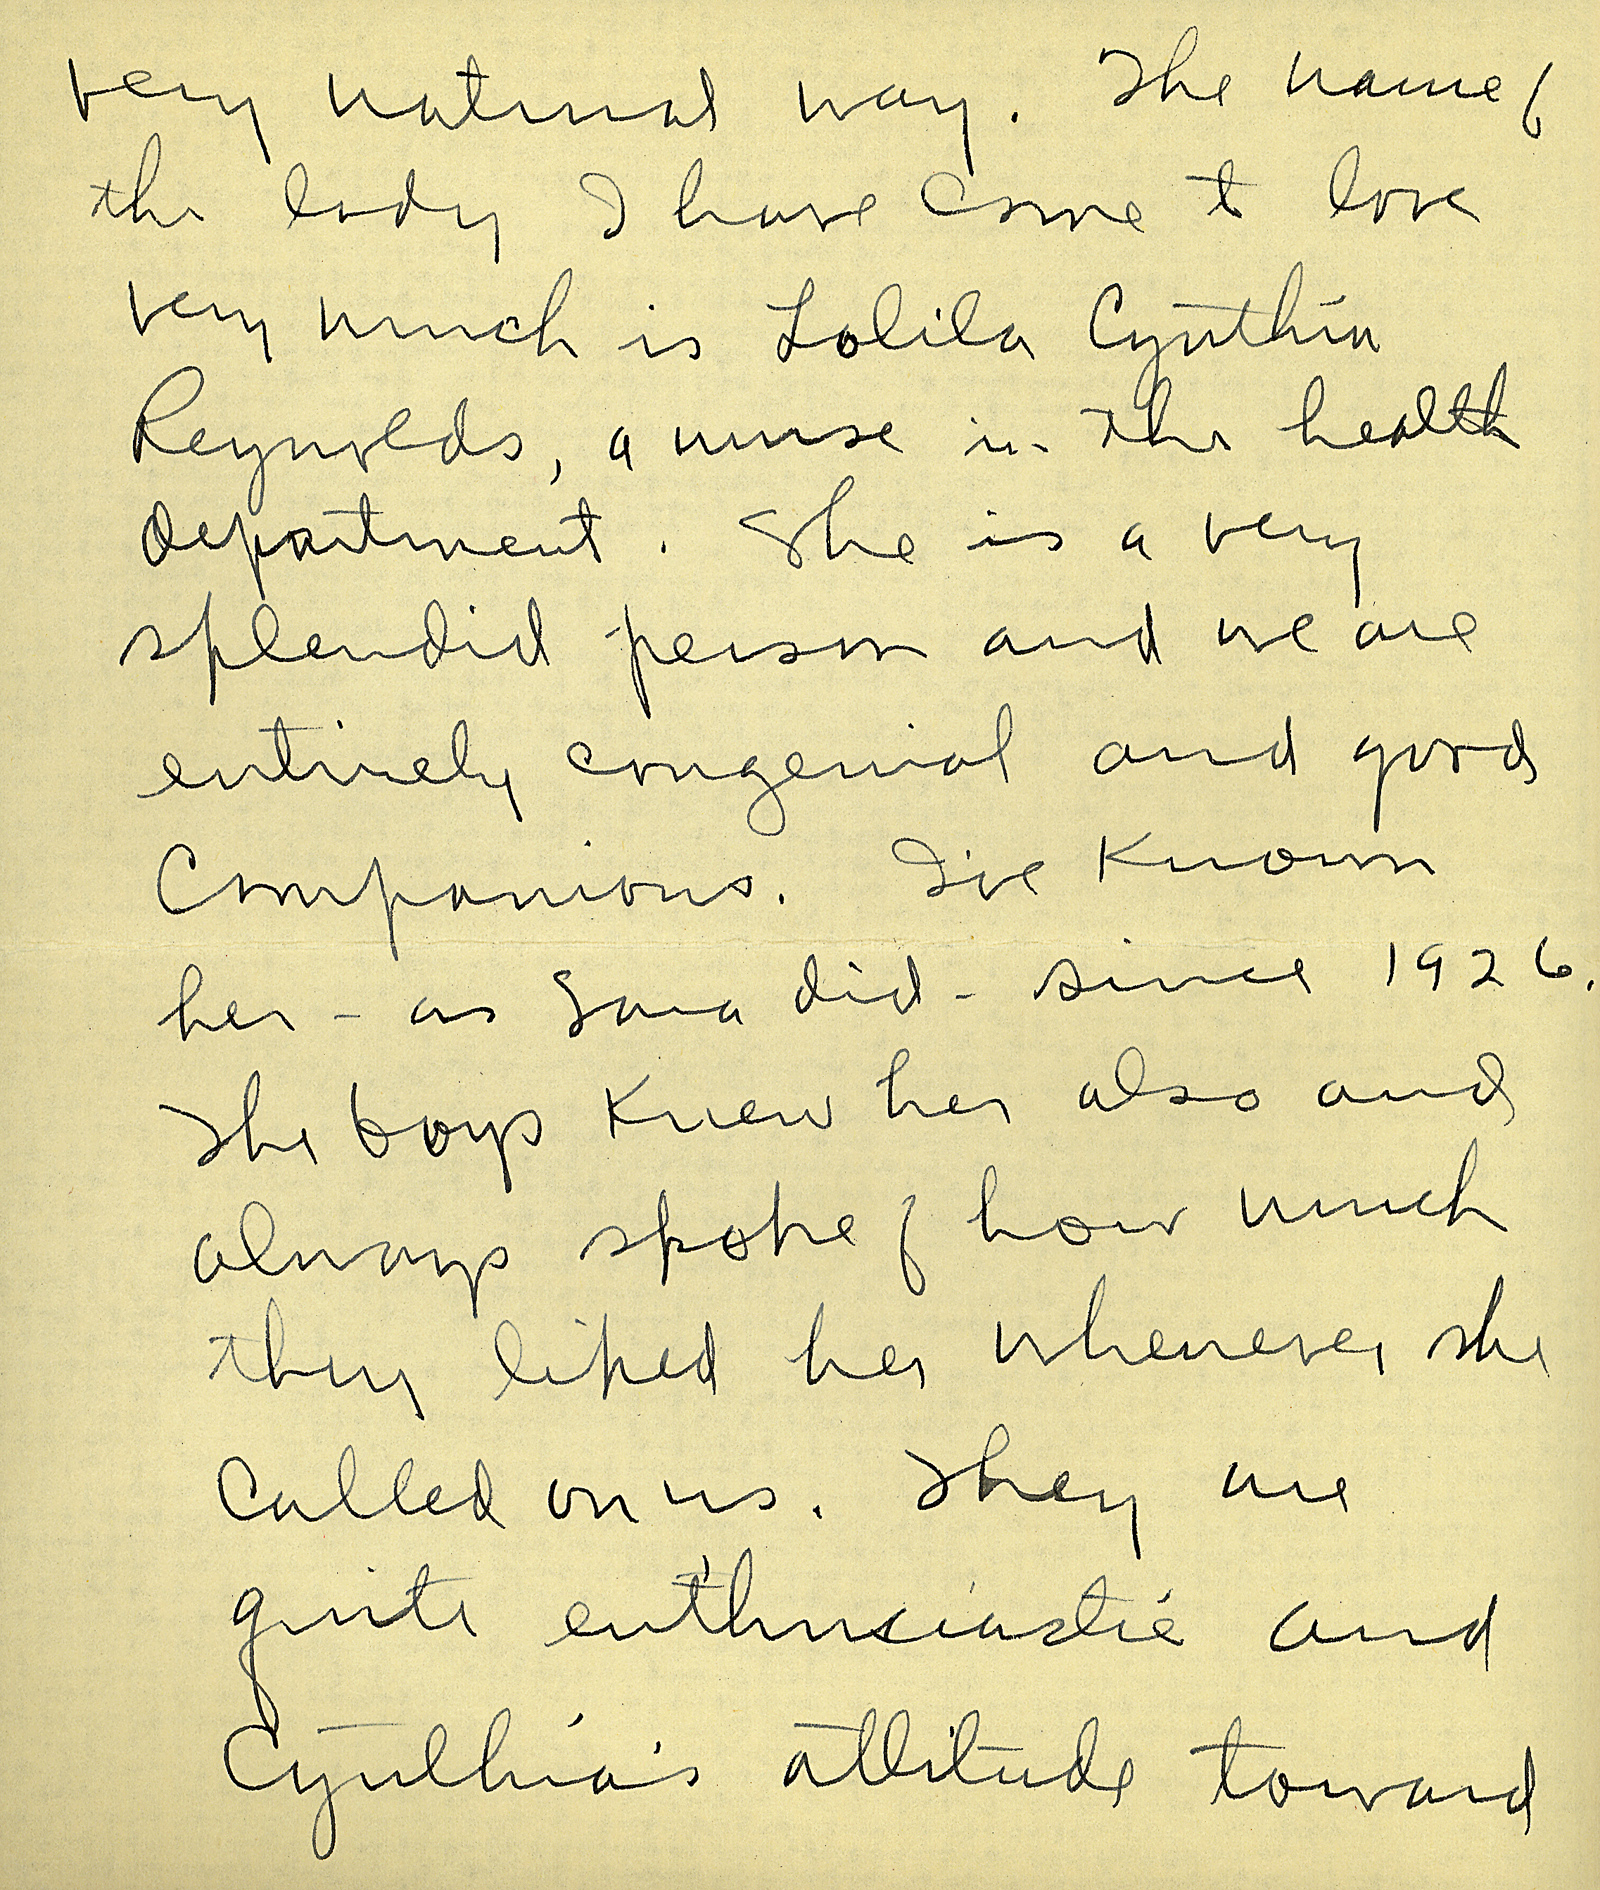 very natural way. The name of
the lady I have come to love
very much is Lolila Cynthia
Reynolds, a nurse in the health
department. She is a very
splendid person and we are
entirely congenial and good
Companions. I've Known
her - as Sara did - since 1926.
The boys Knew her also and
always spoke of how much
they liked her whenever she
Called on us. They are
quite enthusiastic and
Cynthia's attitude toward